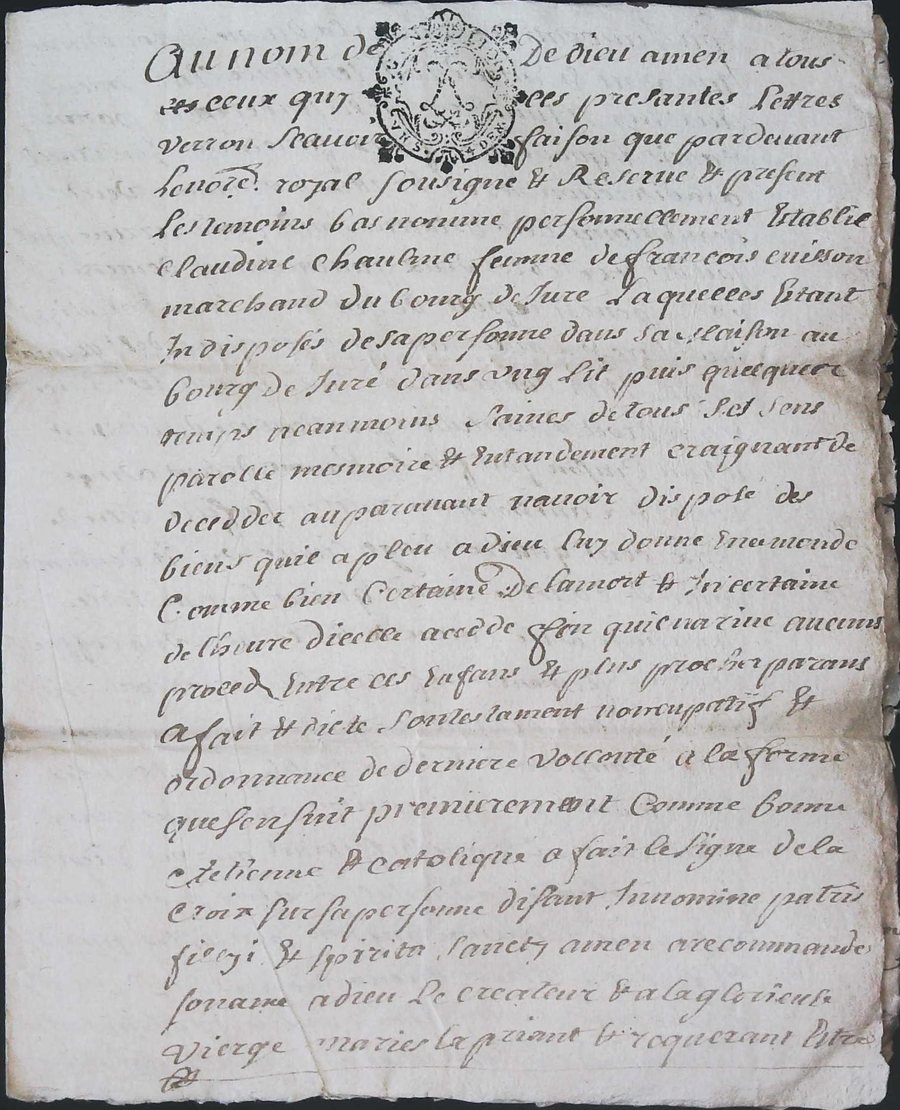 Au nom de De dieu amen a tous
ceux quy ces presantes Lettres
verron scavoir faison que pardevant
Lenotre royal sousigne et Reserve et present
Les temoins bas nomme personnellement Establie
Claudine Chaulme femme de francois
marchand du bourg de Jure Laquelles Estant
Indisposés de sa personne dans sa Maison au
bourg de Juré dans ung Lit puis quelque
temps neanmoins saines de tous ses sens
parolle mesmoire et Entandement craignant de
decedder auparavant navoir disposé des
biens quil a pleu a dieu luy donne Ene monde
Comme bien Certaine De lamort et Incertaine
de lheure dicelle affin quil narive aucuns
proced Entre ces Enfans et plus proches parans
a fait et dicte son testament noncupatif et
ordonnance de derniere vollonté a la forme
que sen suit premierement Comme bonne
et catolique a fait le signe de la
Croix sur sa personne disant Innomine patris
fillyi et spirita sancty amen a recommande
son ame a dieu Le createur et a la glorieuse
vierge maries la priant et requerant Estre